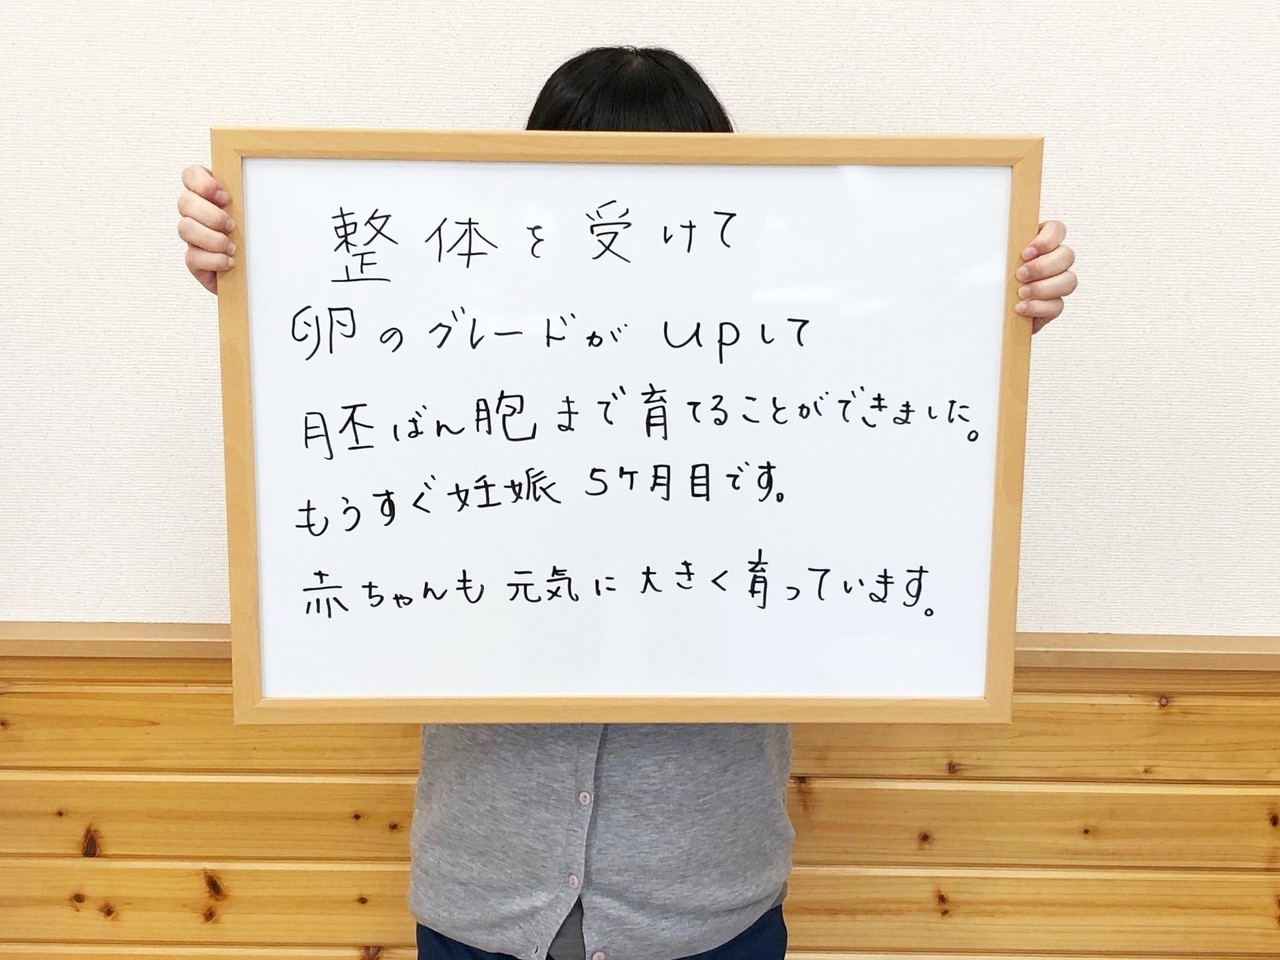 整体を受けて
卵のグレードがupして
胚ばん胞まで育てることができました。
もうすぐ妊娠5ケ月目です。
赤ちゃんも元気に大きく育っています。